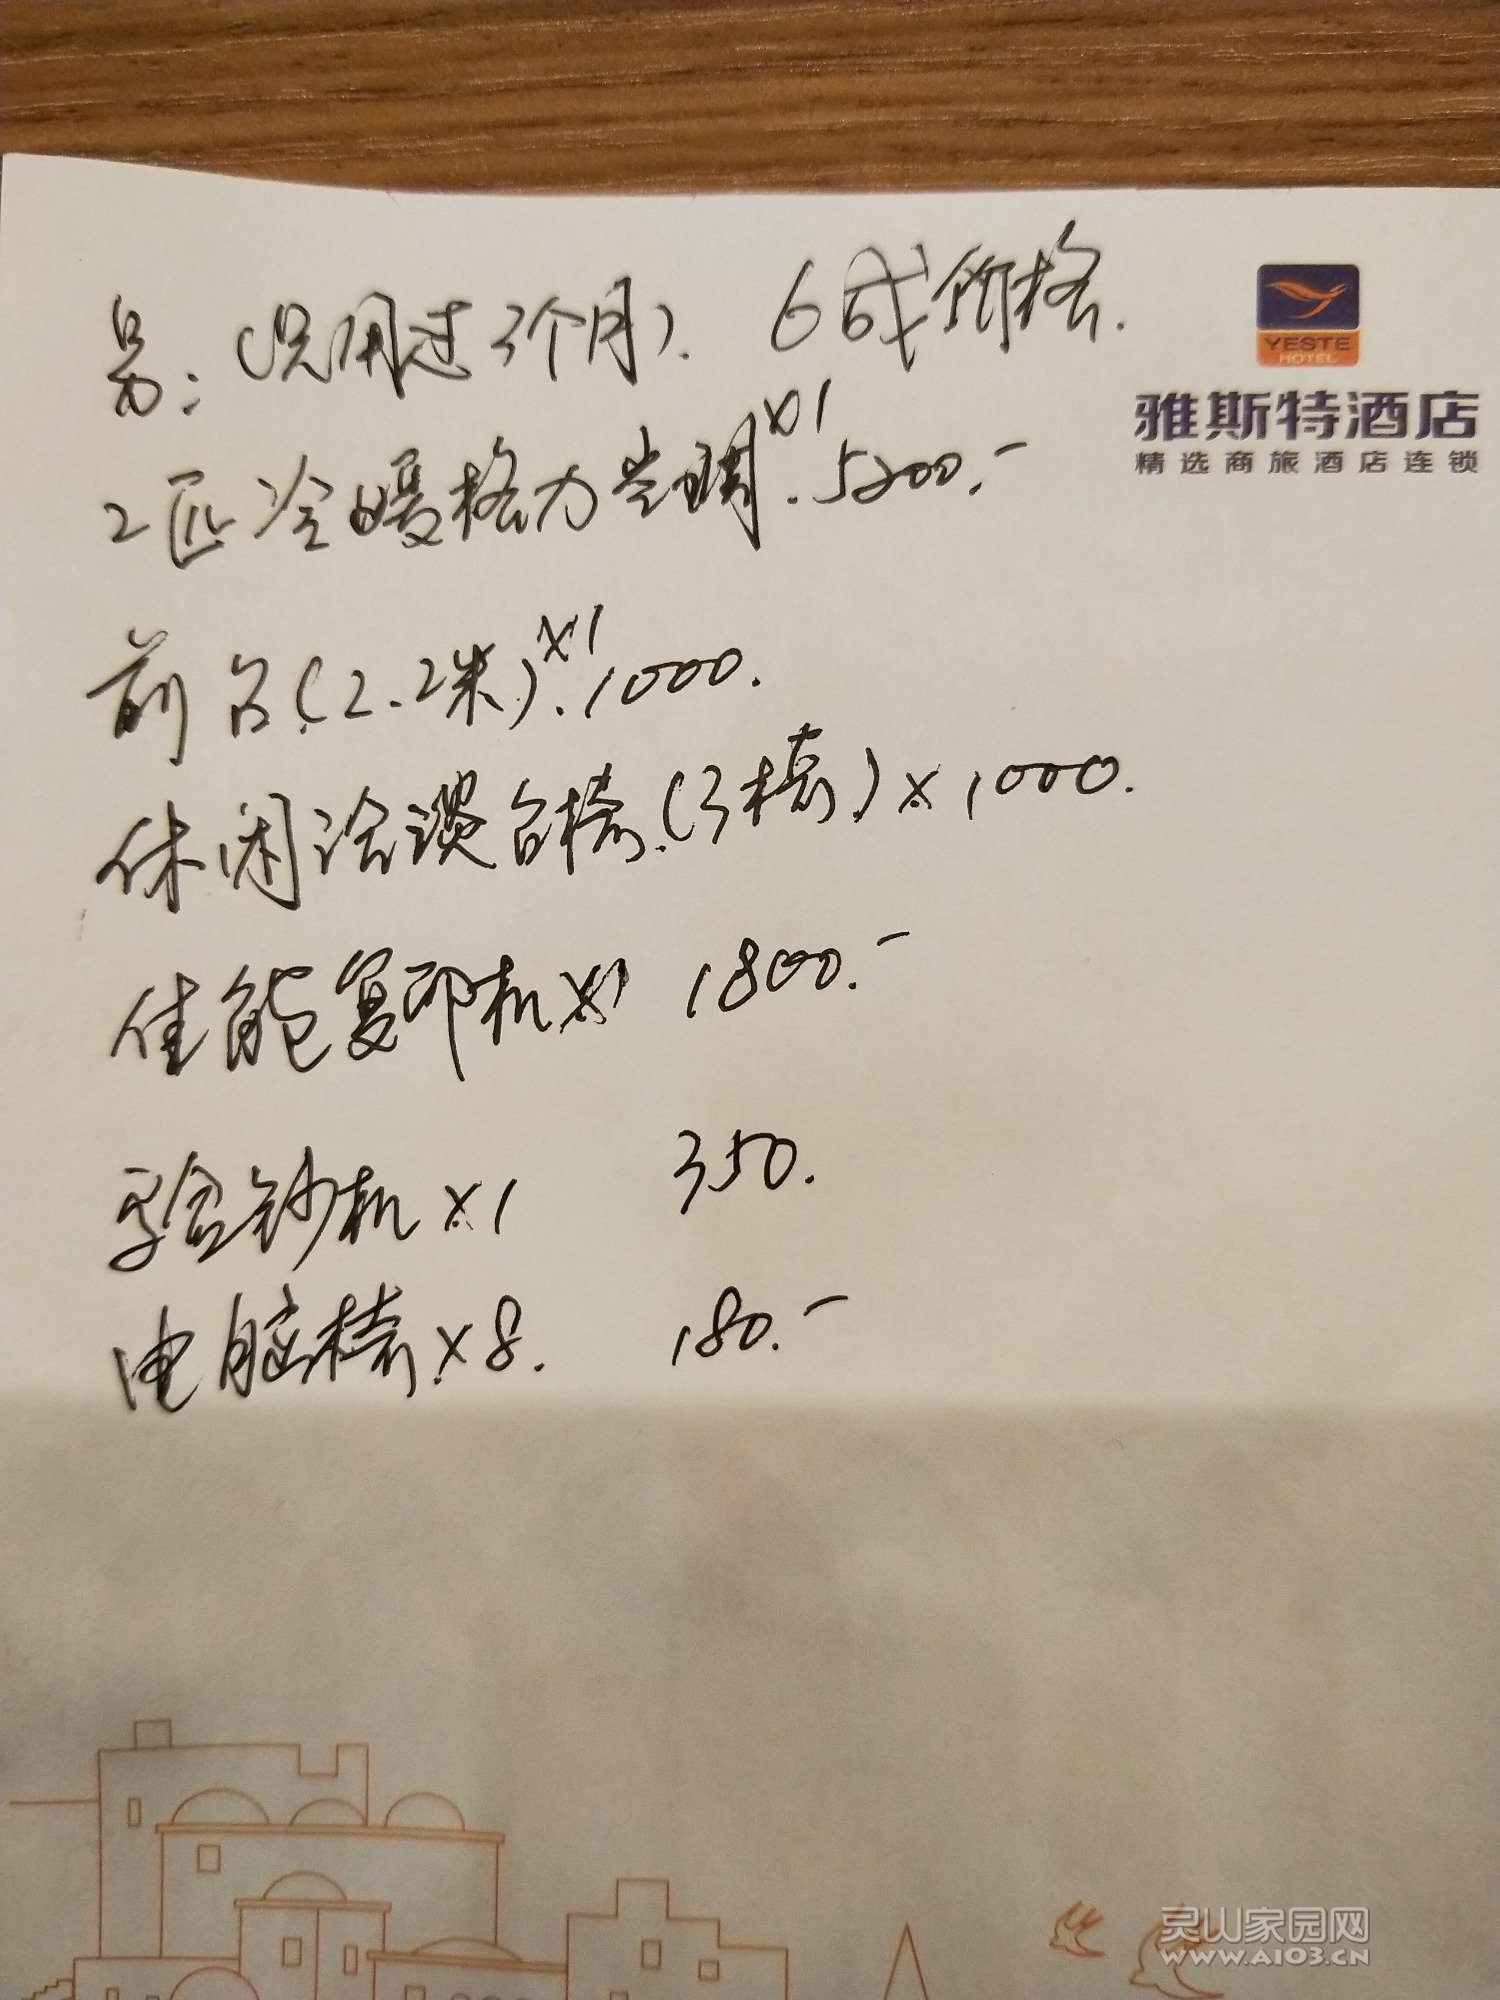 另：（只用过3个月）. 6成价格.
YESTE
HOTEL
雅斯特酒店
精选商旅酒店连锁
2匹冷暖格力空调x1. 5200.-
前台(2.2米)x1. 1000.
休闲洽谈台椅.(3椅)x 1000.
佳能复印机x1 1800.-
验钞机x1 350.
电脑椅x8. 180.-
灵山家园网
WWW.A103.CN